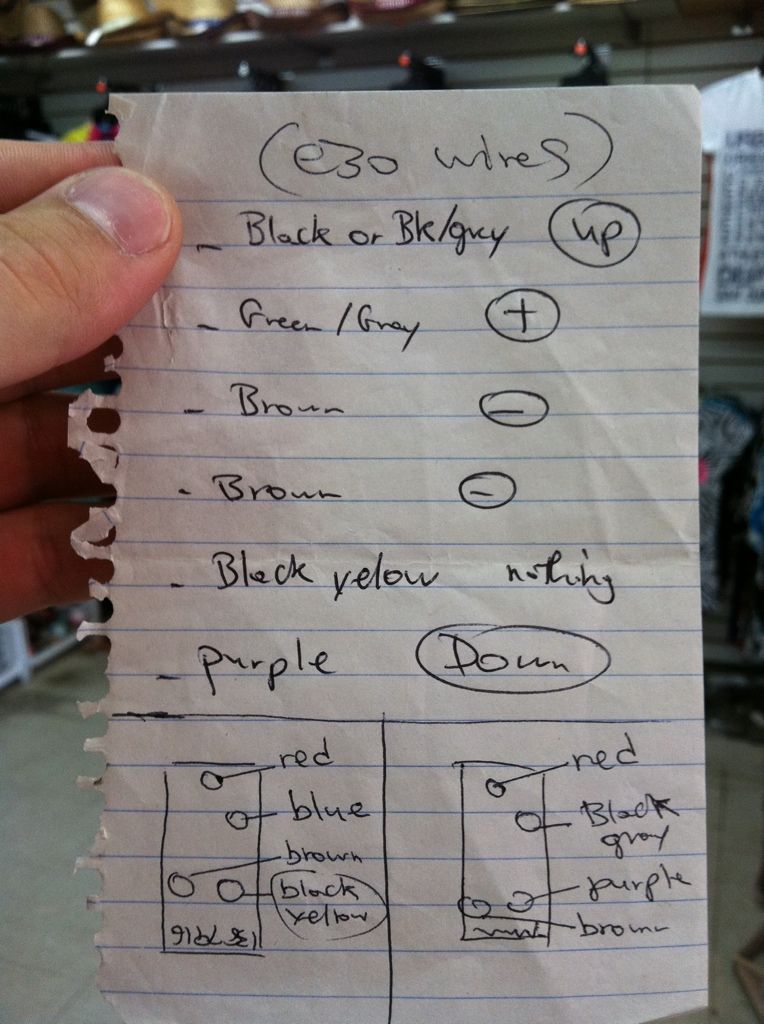 (e30 wires)
- Black or Bk/grey up
- Green/Gray +
- Brown -
- Brown -
- Black yelow nothing
- purple Down
red
blue
brown
black
yellow
red
Black
gray
purple
brown